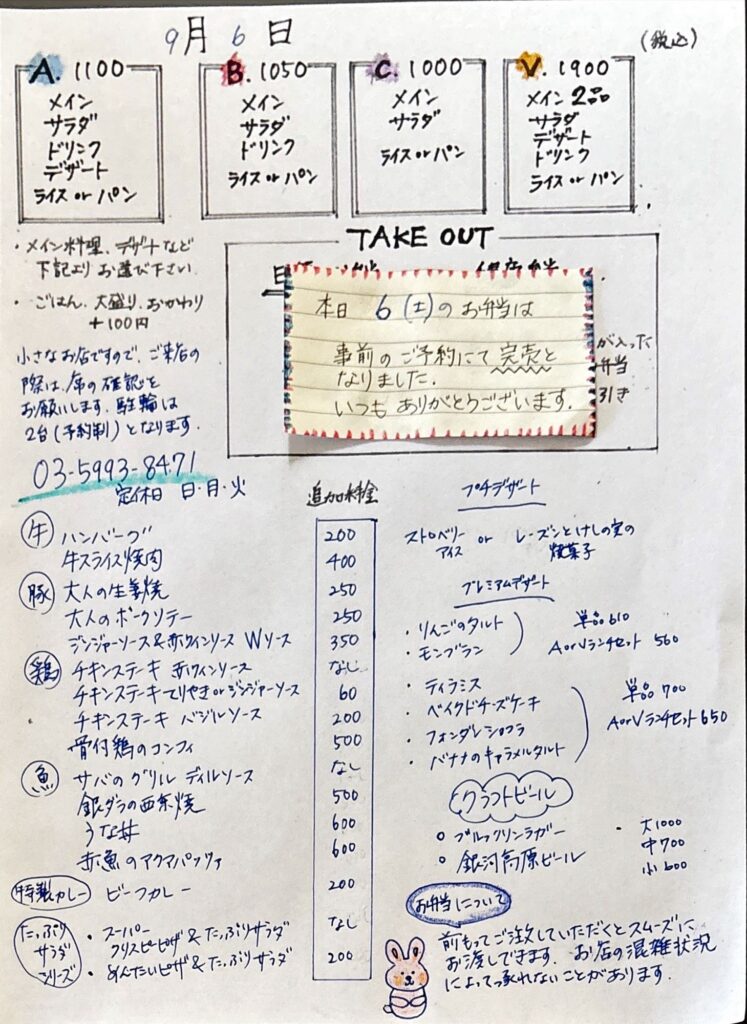 9月 6 日
(税込)
A. 1100
メイン
サラダ
ドリンク
デザート
ライス or パン
B. 1050
メイン
サラダ
ドリンク
ライス or パン
C. 1000
メイン
サラダ
ライス or パン
V. 1900
メイン 2品
サラダ
デザート
ドリンク
ライス or パン
・メイン料理、デザートなど
下記よりお選び下さい。
・ごはん、大盛り、おかわり
+100円
小さなお店ですので、ご来店の
際は、席の確認を
お願いします。駐輪は
2台(予約制)となります。
03-5993-8471
定休日 日・月・火
TAKE OUT
本日 6 (土)のお弁当は
事前のご予約にて完売と
なりました.
いつもありがとうございます.
が入った
弁当
引き
追加料金
牛 ハンバーグ 200
牛スライス焼肉 400
豚 大人の生姜焼 250
大人のポークソテー 250
ジンジャーソース&赤ワインソース Wソース 350
鶏 チキンステーキ 赤ワインソース なし
チキンステーキてりやきorジンジャーソース 60
チキンステーキ バジルソース 200
骨付鶏のコンフィ 500
魚 サバのグリル ディルソース なし
銀ダラの西京焼 500
うな丼 600
赤魚のアクアパッツァ 600
特製カレー ビーフカレー 200
たっぷり
サラダ
シリーズ
・スーパー
クリスピーピザ&たっぷりサラダ なし
・めんたいピザ&たっぷりサラダ 200
プチデザート
ストロベリー
アイス or レーズンとけしの実の
焼菓子
プレミアムデザート
・りんごのタルト
・モンブラン
単品 610
AorVランチセット 560
・ティラミス
・ベイクドチーズケーキ
・フォンダンショコラ
・バナナのキャラメルタルト
単品 700
AorVランチセット 650
クラフトビール
○ ブルックリンラガー
○ 銀河高原ビール
・大1000
中700
小600
お弁当について
前もってご注文していただくとスムーズに
お渡しできます。お店の混雑状況
によって承れないことがあります.